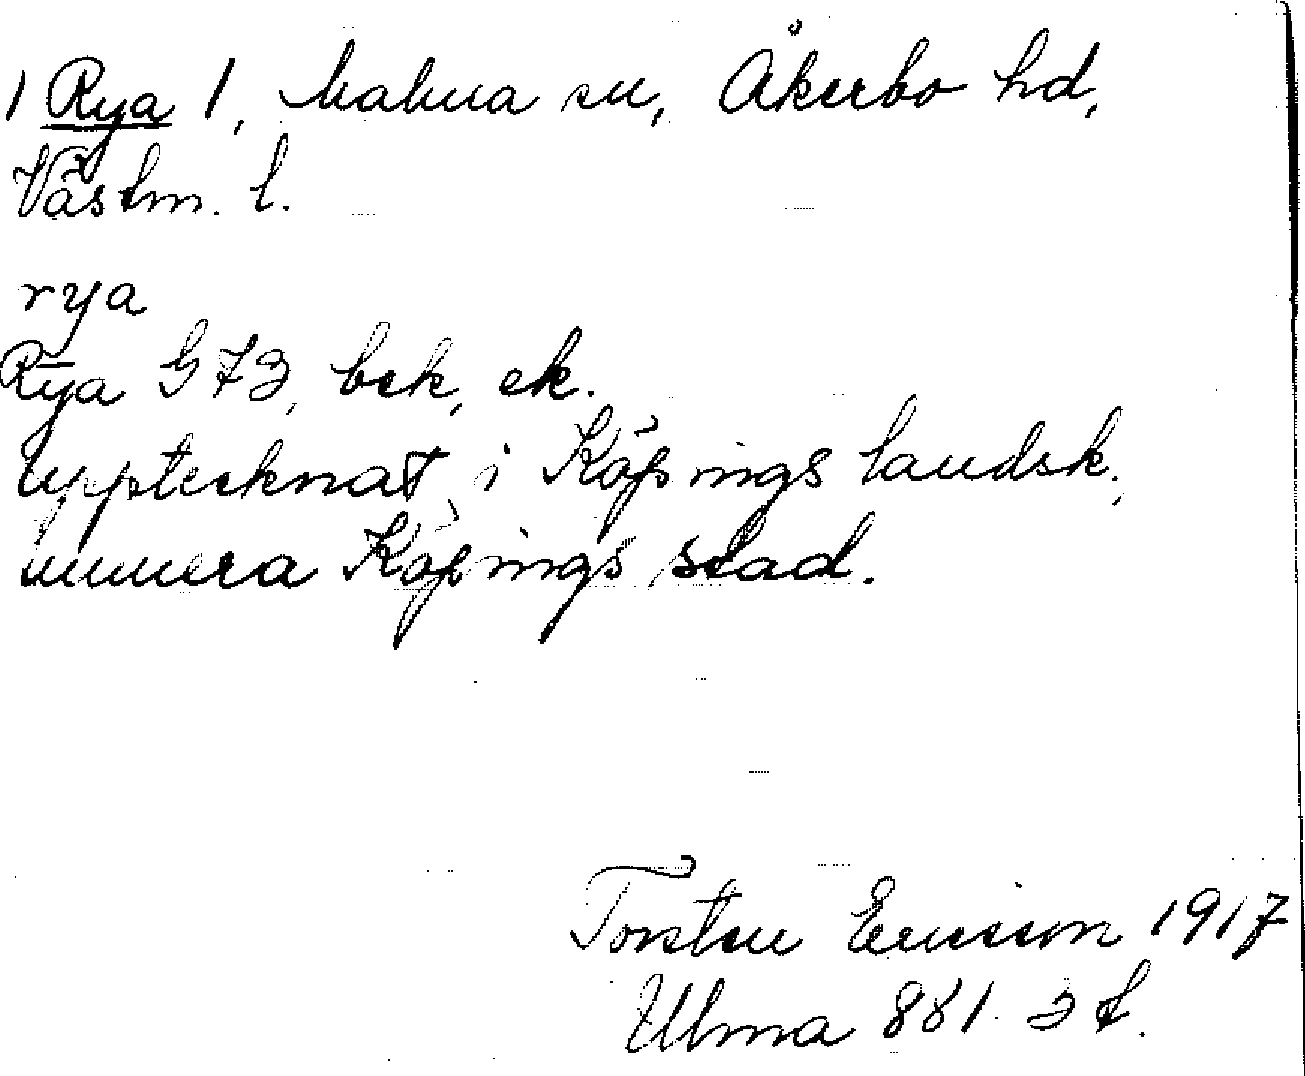 1 Rya 1, Malma sn, Åkerbo hd,
Västm. l.
rya
Rya G73, bek, ek.
Upptecknat i Köpings landsk.,
numera Köpings stad.
Torsten Ericsson 1917
Ulma 881. 3 f.